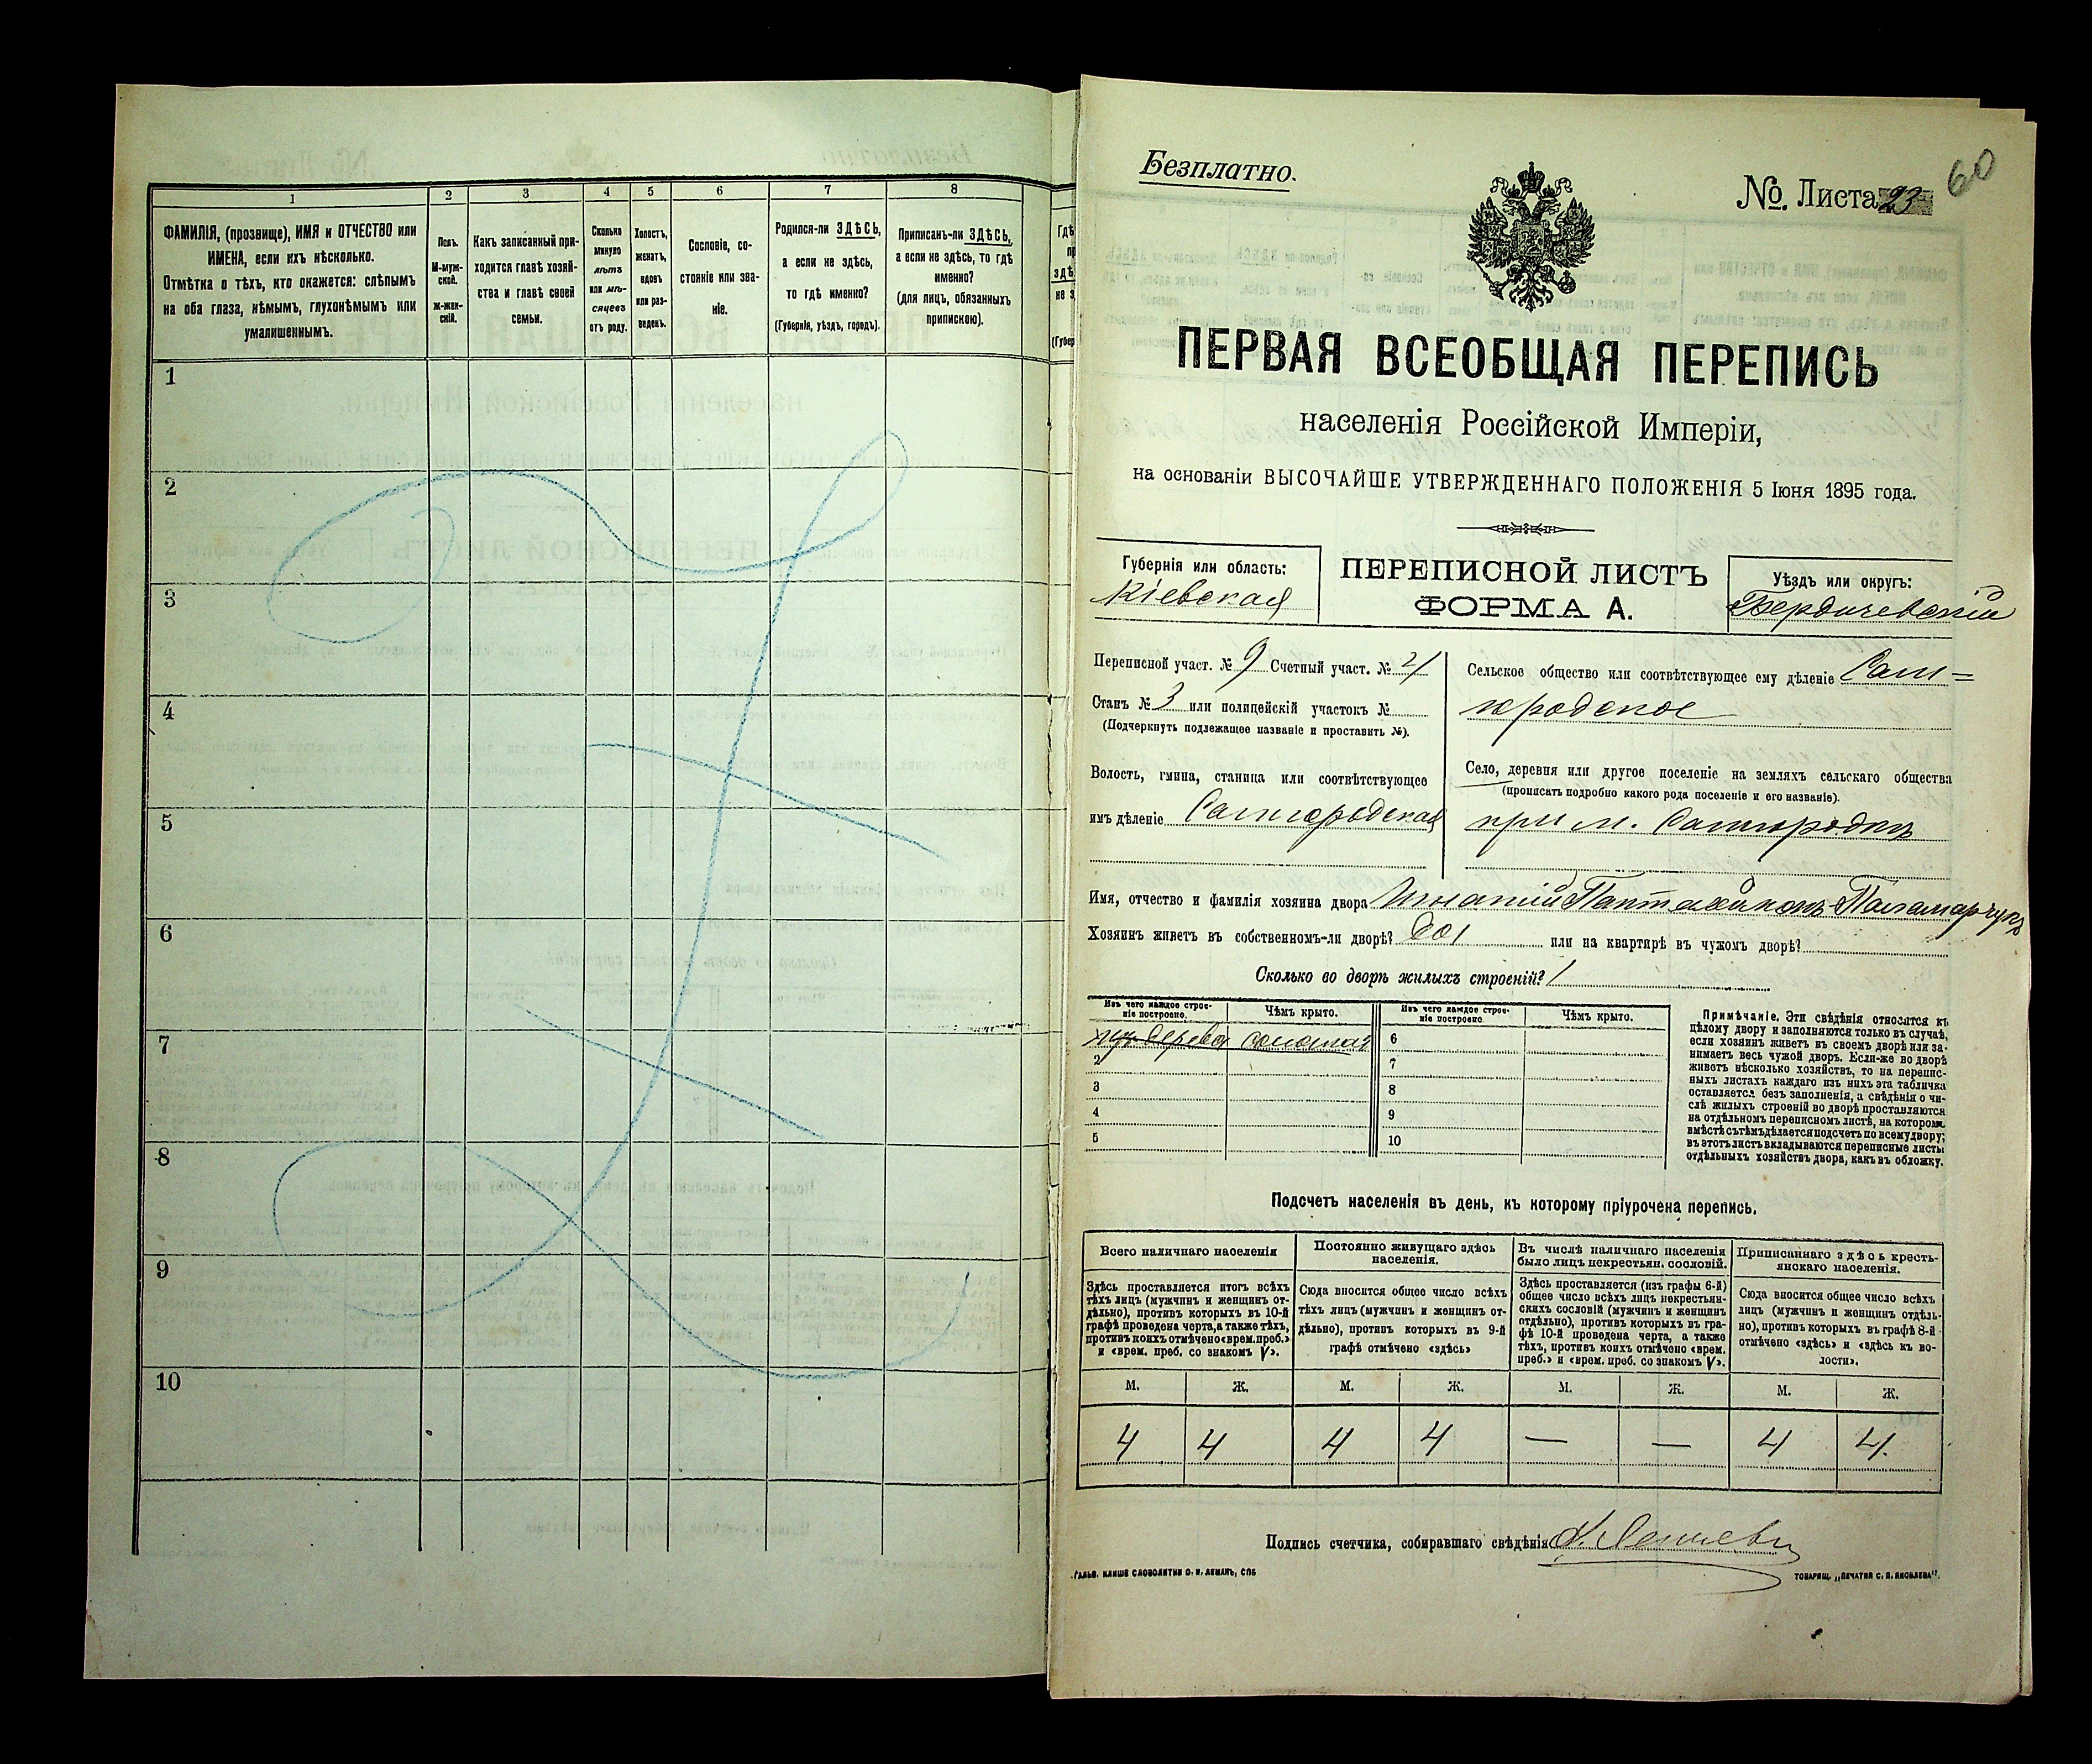 1 2 3 4 5 6 7 8
ФАМИЛІЯ, (прозвище), ИМЯ и ОТЧЕСТВО или
ИМЕНА, если ихъ нѣсколько.
Отмѣтка о тѣхъ, кто окажется: слѣпымъ
на оба глаза, нѣмымъ, глухонѣмымъ или
умалишеннымъ.
Полъ.
М-муж-
ской.
Ж-жен-
скій.
Какъ записанный при-
ходится главѣ хозяй-
ства и главѣ своей
семьи.
Сколько
минуло
лѣтъ
или мѣ-
сяцевъ
отъ роду.
Холостъ,
женатъ,
вдовъ
или раз-
веденъ.
Сословіе, со-
стояніе или зва-
ніе.
Родился-ли ЗДѢСЬ,
а если не здѣсь,
то гдѣ именно?
(Губернія, уѣздъ, городъ).
Приписанъ-ли ЗДѢСЬ,
а если не здѣсь, то гдѣ
именно?
(для лицъ, обязанныхъ
припискою).
1
2
3
4
5
6
7
8
9
10
Безплатно.
№. Листа 23
60
ПЕРВАЯ ВСЕОБЩАЯ ПЕРЕПИСЬ
населенія Россійской Имперіи,
на основаніи ВЫСОЧАЙШЕ УТВЕРЖДЕННАГО ПОЛОЖЕНІЯ 5 Іюня 1895 года.
Губернія или область:
Кіевская
ПЕРЕПИСНОЙ ЛИСТЪ
ФОРМА А.
Уѣздъ или округъ:
Бердичевскій
Переписной участ. № 9 Счетный участ. № 21
Станъ № 3 или полицейскій участокъ №
(Подчеркнуть подлежащее названіе и проставить №).
Волость, гмина, станица или соотвѣтствующее
имъ дѣленіе Самгородская
Сельское общество или соотвѣтствующее ему дѣленіе Сам=
городское
Село, деревня или другое поселеніе на земляхъ сельскаго общества
(прописать подробно какого рода поселеніе и его названіе).
при м. Самгородкѣ
Имя, отчество и фамилія хозяина двора Игнатій Паламарчукъ
Хозяинъ живетъ въ собственномъ-ли дворѣ? или на квартирѣ въ чужомъ дворѣ?
Сколько во дворѣ жилыхъ строеній? 1
Изъ чего каждое строе-
ніе построено.
Чѣмъ крыто.
Изъ чего каждое строе-
ніе построено.
Чѣмъ крыто.
изъ дерева соломой 6
2 7
3 8
4 9
5 10
Примѣчаніе. Эти свѣдѣнія относятся къ
цѣлому двору и заполняются только въ случаѣ,
если хозяинъ живетъ въ своемъ дворѣ или за-
нимаетъ весь чужой дворъ. Если-же во дворѣ
живетъ нѣсколько хозяйствъ, то на перепис-
ныхъ листахъ каждаго изъ нихъ эта табличка
оставляется безъ заполненія, а свѣдѣнія о чи-
слѣ жилыхъ строеній во дворѣ проставляются
на отдѣльномъ переписномъ листѣ, на которомъ
вмѣстѣ съ тѣмъ дѣлается подсчетъ по всему двору;
въ этотъ листъ вкладываются переписные листы
отдѣльныхъ хозяйствъ двора, какъ въ обложку.
Подсчетъ населенія въ день, къ которому пріурочена перепись.
Всего наличнаго населенія
Здѣсь проставляется итогъ всѣхъ
тѣхъ лицъ (мужчинъ и женщинъ от-
дѣльно), противъ которыхъ въ 10-й
графѣ проведена черта, а также тѣхъ,
противъ коихъ отмѣчено «врем. преб.»
и «врем. преб. со знакомъ V».
Постоянно живущаго здѣсь
населенія.
Сюда вносится общее число всѣхъ
тѣхъ лицъ (мужчинъ и женщинъ от-
дѣльно), противъ которыхъ въ 9-й
графѣ отмѣчено «здѣсь»
Въ числѣ наличнаго населенія
было лицъ некрестьян. сословій.
Здѣсь проставляется (изъ графы 6-й)
общее число всѣхъ лицъ некрестьян-
скихъ сословій (мужчинъ и женщинъ
отдѣльно), противъ которыхъ въ гра-
фѣ 10-й проведена черта, а также
тѣхъ, противъ коихъ отмѣчено «врем.
преб.» и «врем. преб. со знакомъ V».
Приписаннаго здѣсь кресть-
янскаго населенія.
Сюда вносится общее число всѣхъ
лицъ (мужчинъ и женщинъ отдѣль-
но), противъ которыхъ въ графѣ 8-й
отмѣчено «здѣсь» и «здѣсь къ во-
лости».
М. Ж. М. Ж. М. Ж. М. Ж.
4 4 4 4 — — 4 4.
Подпись счетчика, собиравшаго свѣдѣнія
ГАЛЬВ. КЛИШЕ СЛОВОЛИТНИ О. И. ЛЕМАНЪ, СПБ
ТОВАРИЩ. „ПЕЧАТНЯ С. П. ЯКОВЛЕВА".